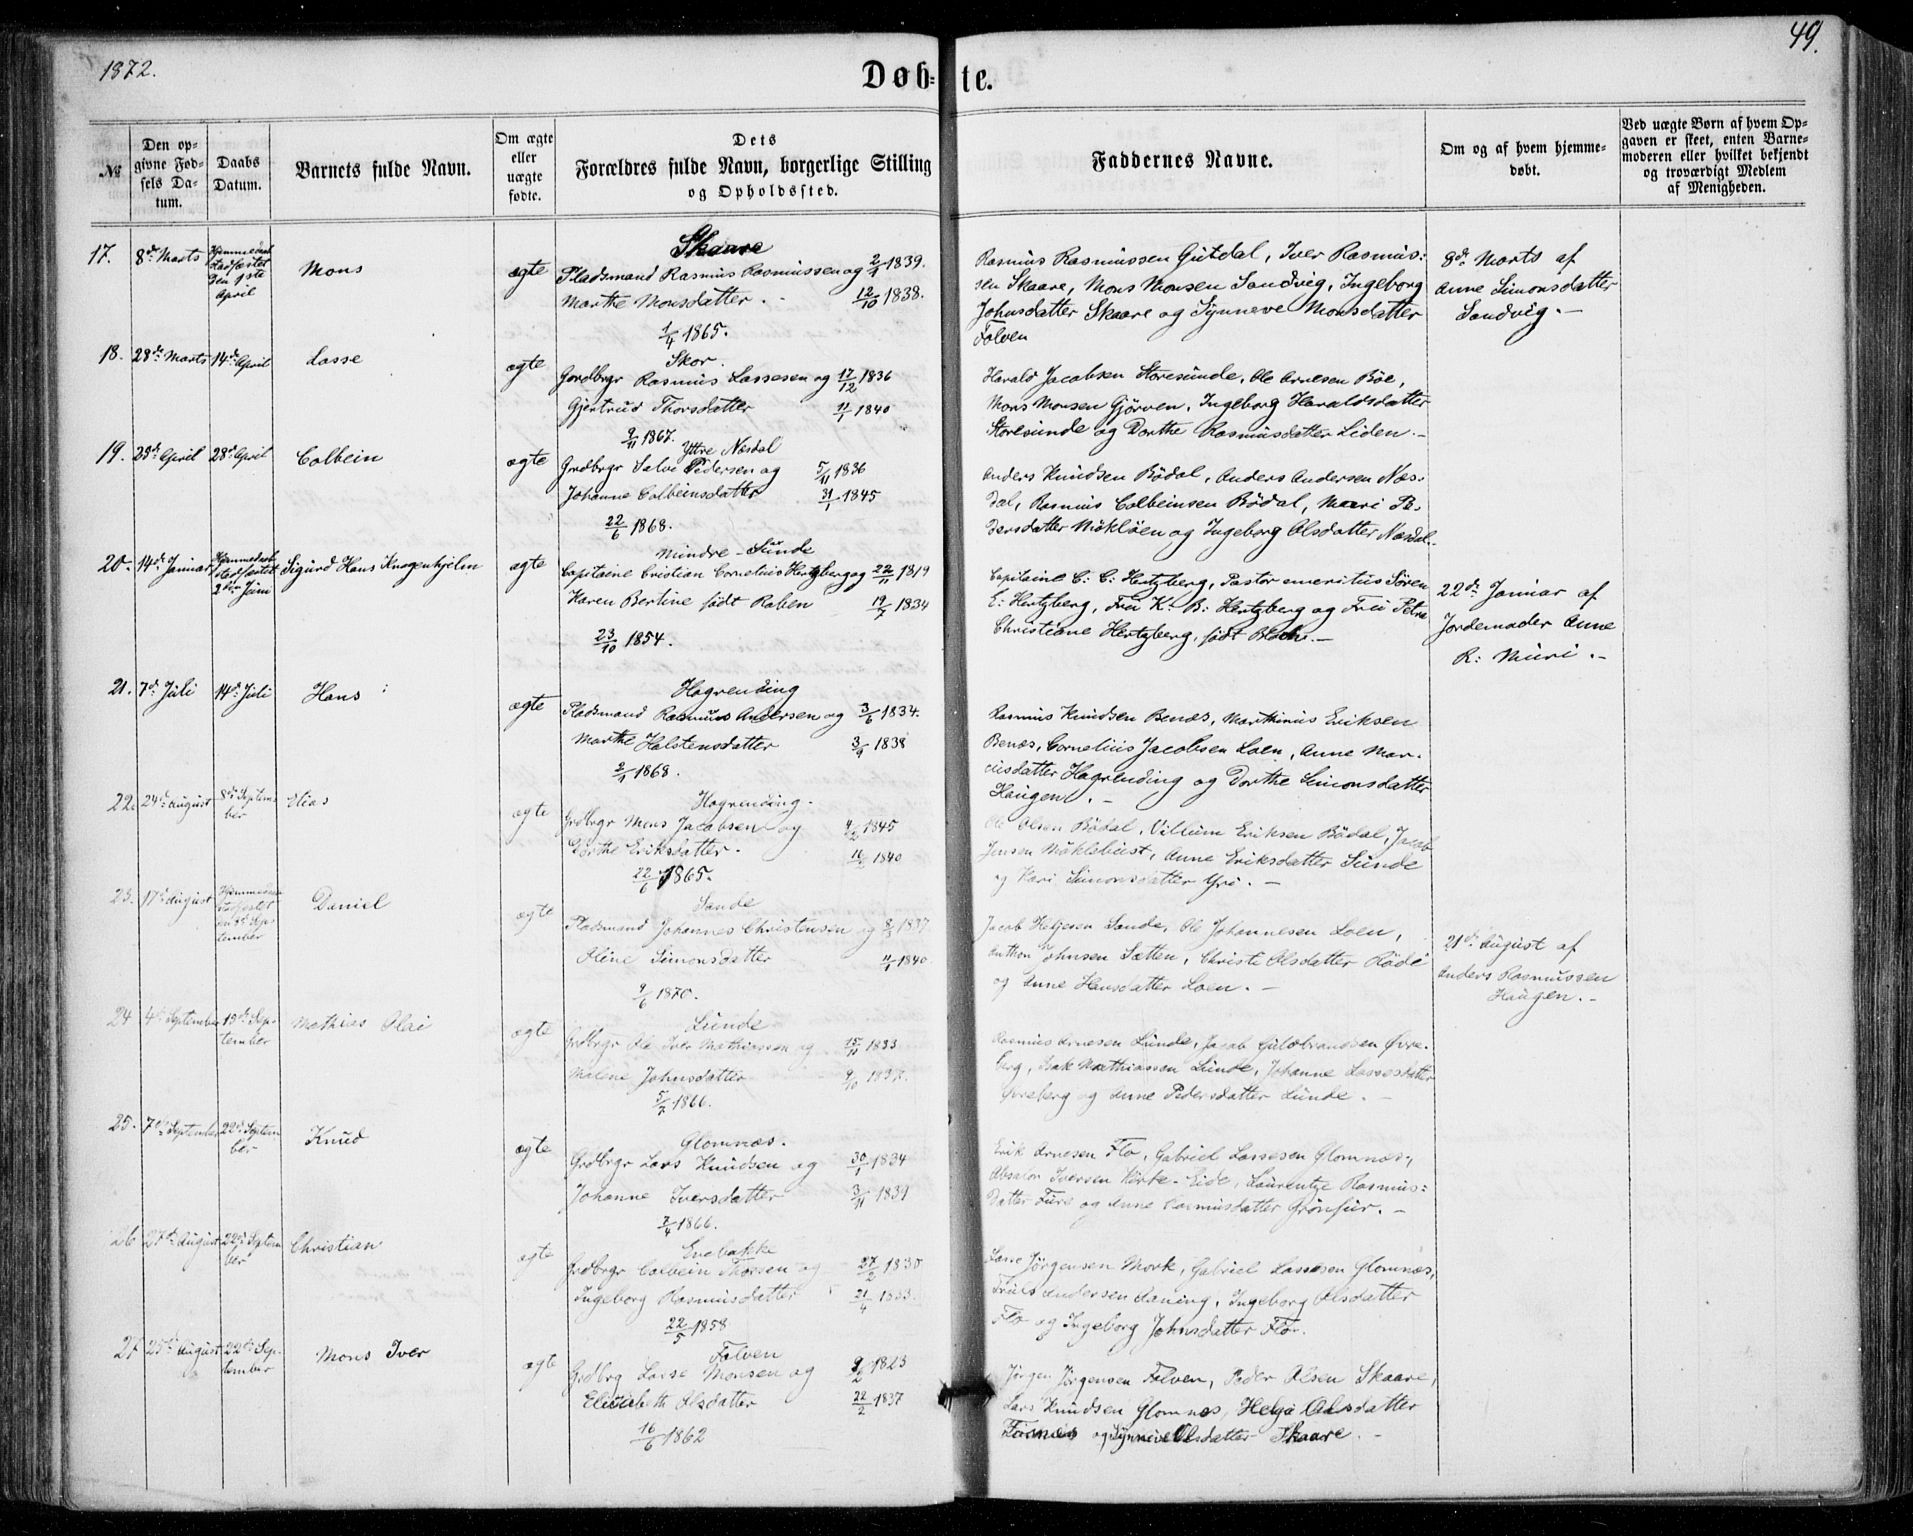 1872.
Døbte.
49.
№
Den opgivne Fødsels Datum.
Daabs Datum.
Barnets fulde Navn.
Om ægte eller uægte fødte.
Dets Forældres fulde Navn, borgerlige Stilling og Opholdssted.
Faddernes Navne.
Om og af hvem hjemmedøbt.
Ved uægte Børn af hvem Opgaven er skeet, enten Barnemoderen eller hvilket bekjendt og troværdigt Medlem af Menigheden.
17. 8de Marts
Hjemmedøbt
Stadfæstet
den 1ste
April
Mons
ægte
Skaare
Pladsmand Rasmus Rasmussen og 2/4 1839.
Marthe Monsdatter. - 12/10 1838.
1/4 1865.
Rasmus Rasmussen Gutdal, Iver Rasmus:
sen Skaare, Mons Monsen Sandvig, Ingeborg
Johnsdatter Skaare og Synneve Monsdatter
Folven
8de Marts af
Anne Simonsdatter
Sandvig. -
18. 28de Marts 14de April Lasse
ægte
Skor.
Gordbrgr Rasmus Lassesen og 17/12 1836
Gjertrud Thorsdatter 11/1 1840
9/11 1867.
Harald Jacobsen Storesunde, Ole Arnesen Böe,
Mons Monsen Gjörven, Ingeborg Haraldsdatter
Storesunde og Dorthe Rasmusdatter Liden. -
19. 23de April 28de April Colbein
ægte
Yttre Næsdal
Grdbrgr Salve Pedersen og 5/11 1836
Johanne Colbeinsdatter 31/1 1845
22/6 1868.
Anders Knudsen Bödal, Anders Andersen Næs-
dal, Rasmus Colbeinsen Bödal, Mari Pe-
dersdatter Möklöen og Ingeborg Olsdatter Næsdal.
20. 14de Januar
Hjemmedøbt
stadfæstet
2den Juni
Sigurd Hans Knagenhjelm
ægte
Mindre-Sunde
Capitaine Cristian Cornelius Hertzberg og 22/11 1819
Karen Bertine født Raben 19/7 1834
23/10 1854.
Capitaine C: C: Hertzberg, Pastor emeritus Sören
E: Hertzberg, Fru K: B: Hertzberg og Fru Petra
Christiane Hertzberg, født -
22de Januar af
Jordemoder Anne
R: Muri. -
21. 7de Juli 14de Juli Hans
ægte
Hogrending
Pladsmand Rasmus Andersen og 3/6 1834.
Marthe Halstensdatter 3/9 1838
2/4 1868.
Rasmus Knudsen Benæs, Marthinus Eriksen
Benæs, Cornelius Jacobsen Loen, Anne Mar-
cusdatter Hogrending og Dorthe Simonsdatter
Haugen. -
22. 24de August
8de Septem-
ber
Elias
ægte
Hogrending.
Grdbrgr Mons Jacobsen og 9/2 1845
Dorthe Eriksdatter. 16/2 1840
22/6 1865.
Ole Olsen Bödal, Villum Eriksen Bödal, Jacob
Jensen Möklebust, Anne Eriksdatter Sunde
og Kari Simonsdatter Yri. -
23. 17de August
Hjemmedøbt
stadfæstet
September
Daniel
ægte
Sande
Pladsmand Johannes Christensen og 8/3 1837
Oline Simonsdatter 11/1 1840
9/6 1870.
Jacob Helgesen Sande, Ole Johannesen Loen,
Anthon Johnsen Sætten, Christi Olsdatter Rödi
og Anne Hansdatter Loen. -
21de August af
Anders Rasmussen
Haugen. -
24 4de September
15de Sep-
tember
Mathias Olai
ægte
Lunde
Grdbrgr Ole Iver Mathiassen og 15/11 1833
Malene Johnsdatter 9/10 1837.
5/7 1866.
Rasmus Arnesen Lunde, Jacob Guldbrandsen Øvre-
berg, Isak Matthiassen Lunde, Johanne Lassesdatter
Øvreberg og Anne Pedersdatter Lunde. -
25. 7de September
22de Septem
ber
Knud
ægte
Glomnæs.
Grdbrgr Lars Knudsen og 30/1 1834
Johanne Iversdatter 3/11 1839
7/4 1866.
Erik Arnesen Flo, Gabriel Lassesen Glomnæs,
Absalon Iversen Kirke-Eide, Laurentze Rasmus:
datter Fure og Anne Rasmusdatter Grönfur. -
26 27de August
22de Septem
ber
Christian
ægte
Enebakke
Grdbrgr Colbein Thorsen og 27/2 1830
Ingeborg Rasmusdatter 21/4 1833.
22/5 1858
Lasse Jörgensen Mork, Gabriel Lassesen Glomnæs,
Truls Andersen Aaning, Ingeborg Olsdatter
Flo og Ingeborg Johnsdatter Flo.
27 25de August
22de Sep-
tember
Mons Iver
ægte
Folven
Grdbrg Lasse Monsen og 9/2 1823
Elisabeth Olsdatter 22/2 1837
16/6 1862
Jörgen Jörgensen Folven, Peder Olsen Skaare,
Lars Knudsen Glomnes, Helga Olsdatter
og Synneve Olsdatter Skaare. -